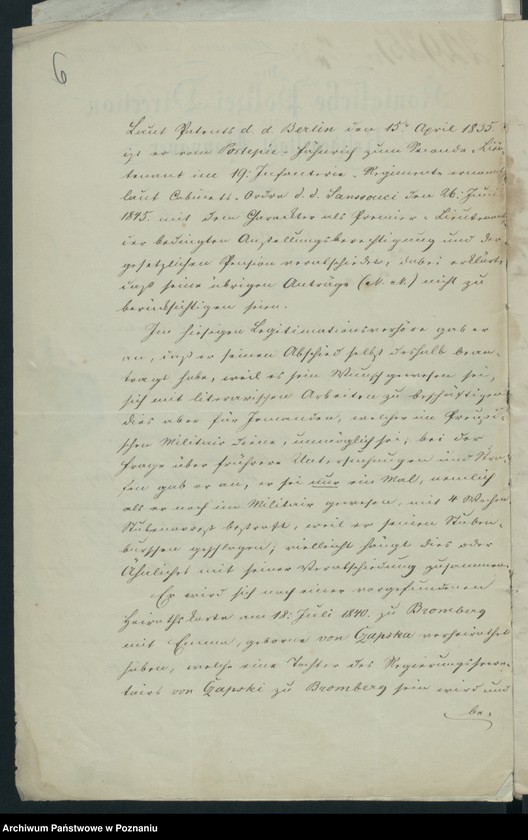 6
Laut Patents d. d. Berlin den 15t April 1835
ist er vom Portepée-Fähnrich zum Seconde-Lieu-
tenant im 19: Infanterie-Regimente ernannt
laut Cabinets-Ordre d. d. Sanssouci den 26: Juni
1845. mit dem Charakter als Premier-Lieutenant
der bedingten Anstellungsberechtigung und der
gesetzlichen Pension verabschiedet, dabei erklärt,
daß seine übrigen Anträge nicht zu
berücksichtigen seien.
Im hiesigen Legitimationsverhöre gab er
an, daß er seinen Abschied selbst deshalb bean-
tragt habe, weil es sein Wunsch gewesen sei,
sich mit literarischen Arbeiten zu beschäftigen
dies aber für Jemanden, welcher im Preußi-
schen Militair diene, unmöglich sei; bei der
Frage über frühere Untersuchungen und Stra-
fen gab er an, er sei nur ein Mal, nemlich
als er noch im Militair gewesen, mit 4 Wochen
Stubenarrest bestraft, weil er seinen Stuben-
burschen geschlagen; vielleicht hängt dies oder
Ähnliches mit seiner Verabschiedung zusammen.
Er wird sich nach einer vorgefundenen
Heirathskarte am 18: Juli 1840. zu Bromberg
mit Emma, geborne von Czapska verheirathet
haben, welche eine Tochter des Regierungssecre-
tairs von Czapski zu Bromberg sein wird und
be-
Archiwum Państwowe w Poznaniu